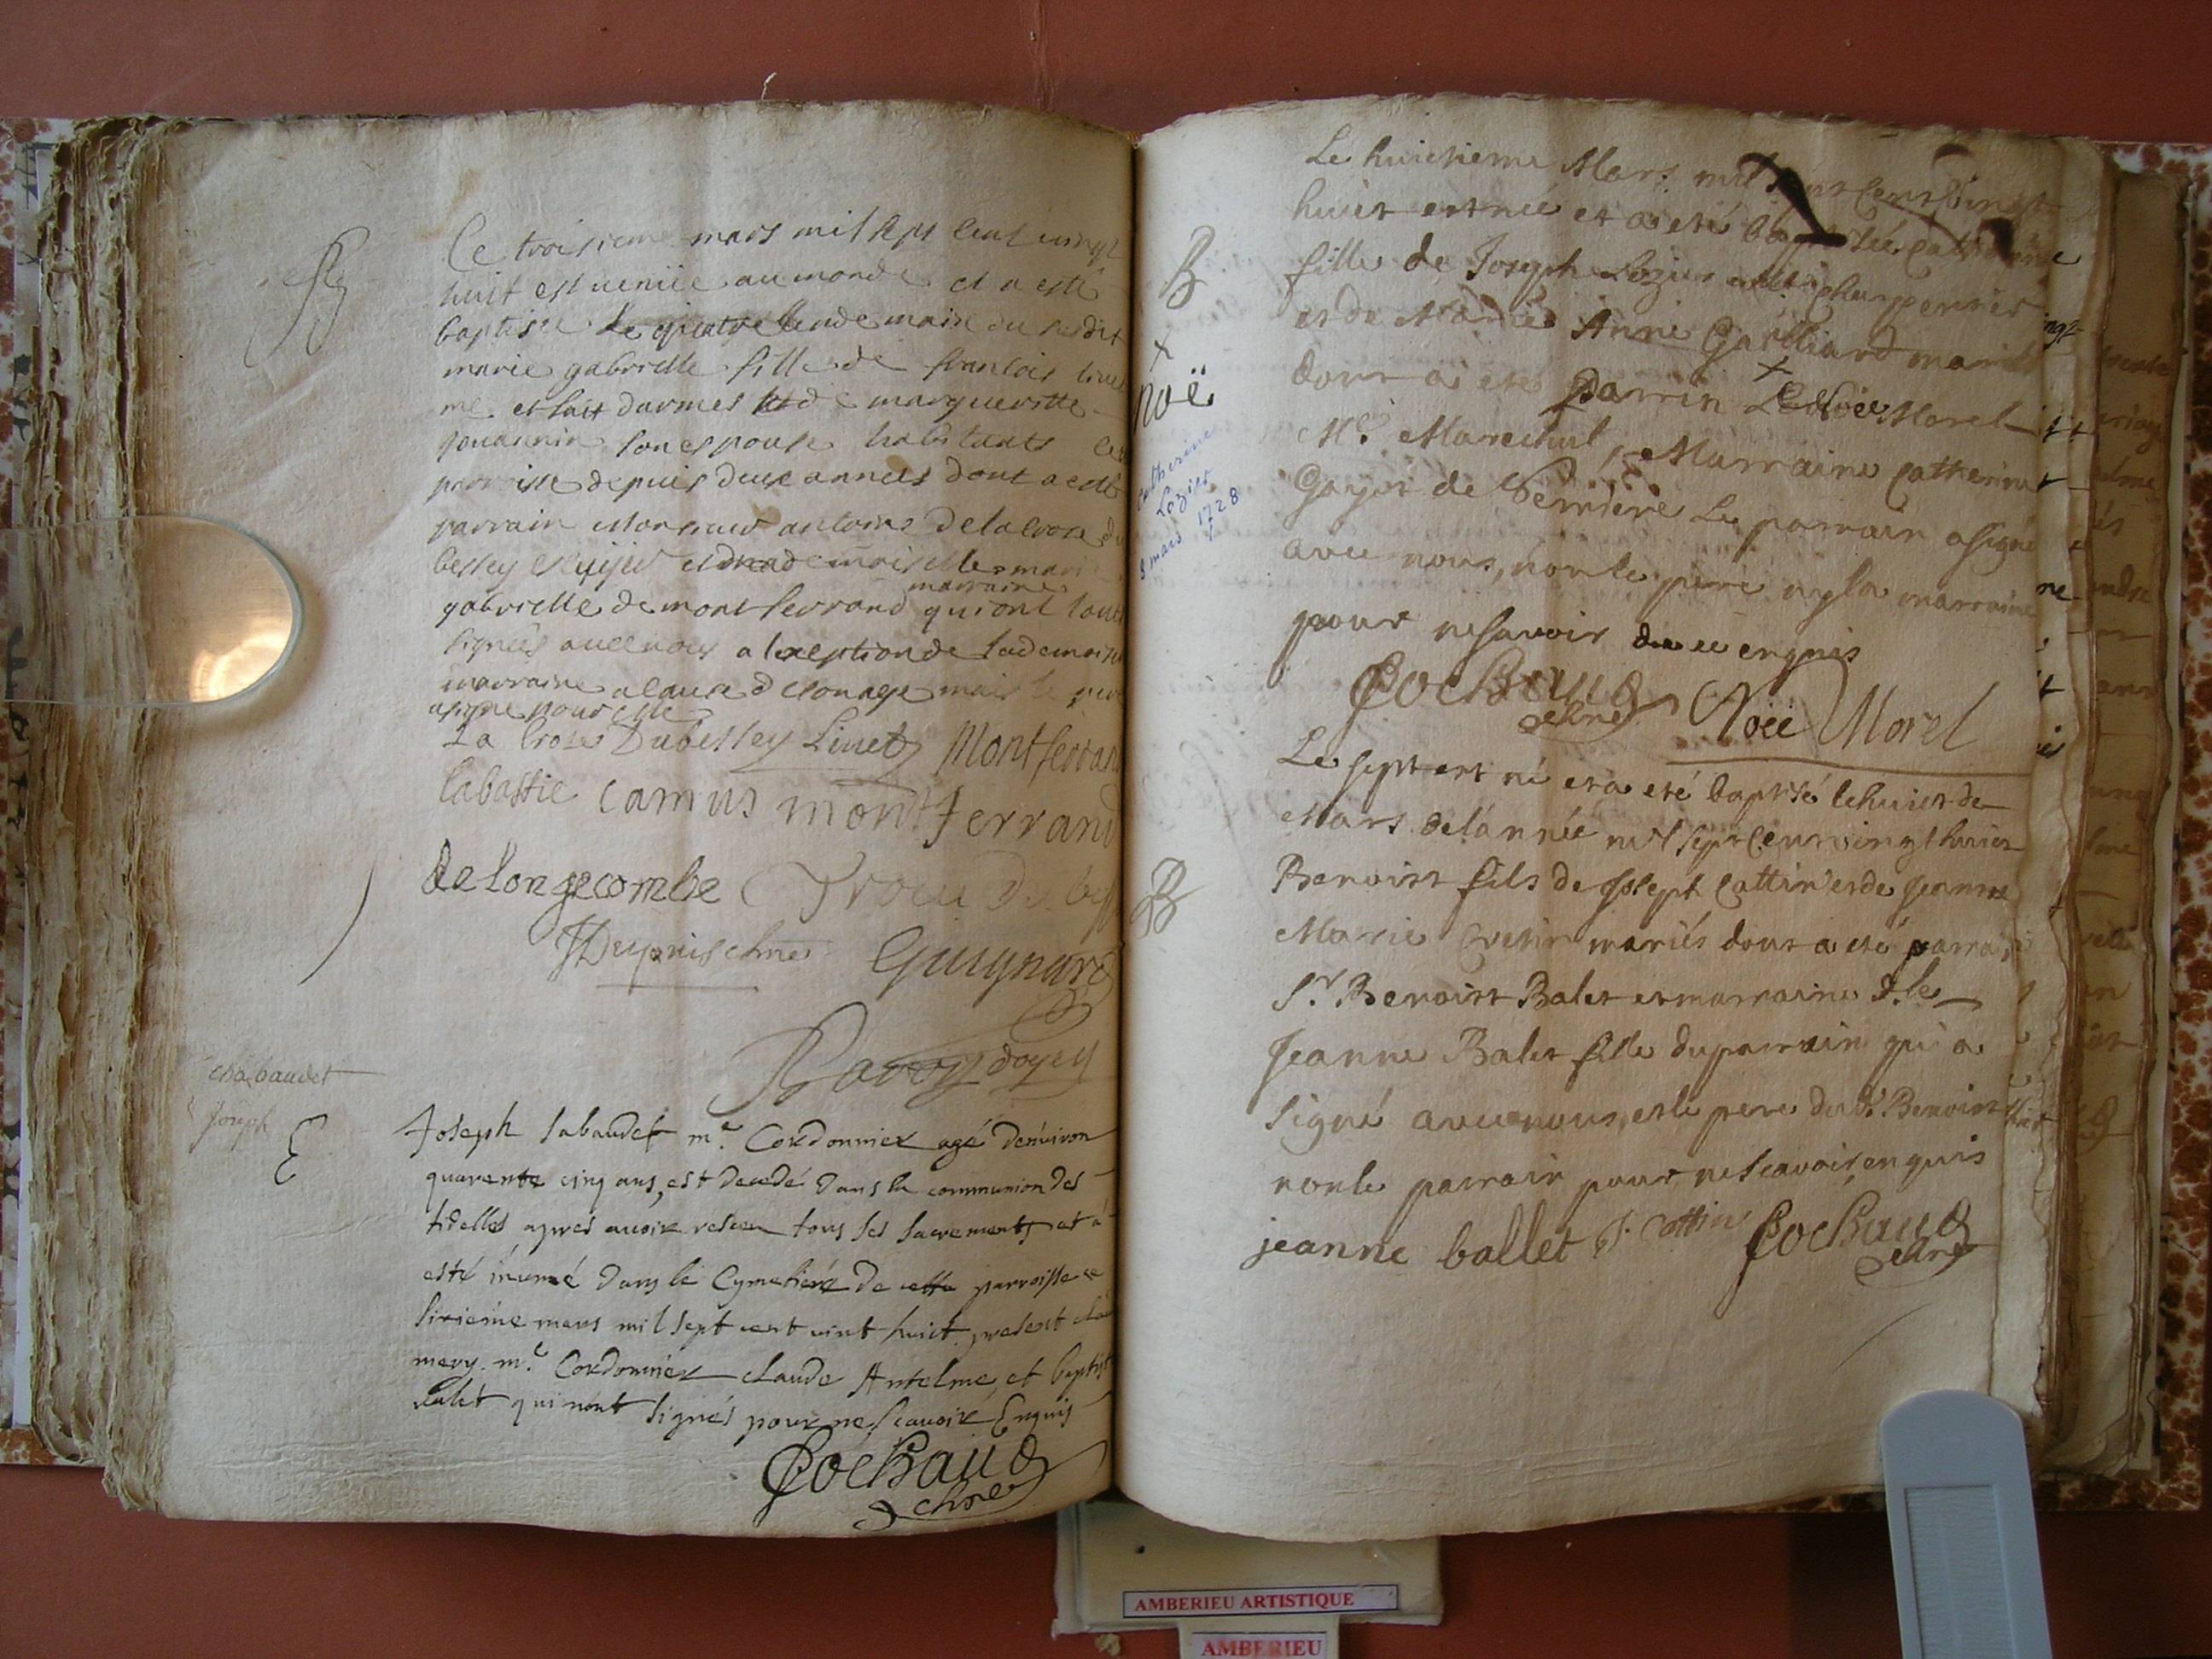 Ce troisieme mars mil sept cent vingt
huit est venüe au monde et a esté
baptisée le quatre lendemain du susdit
marie gabrielle fille de francois linet
me et fait darmes et de margueritte
jouannin son espouse habitants
parroisse depuis deux annees dont a esté
parrain Monsieur antoine Delacroze du
bessey et mademoiselle marie
gabrielle de montferrand marraine qui ont tous
signés avec nous a lexeption de lademoiselle
marraine a cause de son age mais le pere
a signé pour elle
La Croze Dubessey Linet Montferrand
labastie camus montferrand
de Longecombe
Dupuis chne Guignard
Ravoy doyen
chabaudet
Joseph
E
Joseph sabaudet m.e Cordonnier agé denviron
quarente cinq ans, est decedé dans la communion des
fidelles apres avoir resceu tous ses sacrements et a
esté inumé dans le Cymetiere de cette parroisse ce
sixieme mars mil sept cent vint huict present
mery m.e Cordonnier claude Antelme, et baptiste
valet qui nont signés pour ne scavoir Enquis
Cochaud
chne
Le huictieme Mars mil sept cent vingt
huict est née et a eté baptisée Catherine
fille de Joseph Lozier charpentier
et de Marie Anne Gailliard mariés
dont a eté parrin Noëe Morel
M.e Marechal, Marraine Catherine
Gayot de Verniere Le parrain a signé
avec nous, non le pere ny la marraine
pour ne savoir de ce enquis
Cochaud
chne
Noëe Morel
B
+
noë
Catherine
Lozier
8 mars 1728
Le sept est né et a eté baptisé le huict de
Mars de lánnée mil sept cent vingt huict
Benoist fils de Joseph Cattin et de Jeanne
Marie Cretin mariés dont a eté parrain
S.r Benoist Balet et marraine d.le
Jeanne Balet fille du parrain qui a
signé avec nous, et le pere dud. Benoist
non le parrain pour ne scavoir, enquis
jeanne ballet J. Cattin Cochaud
chne
B
AMBERIEU ARTISTIQUE
AMBERIEU